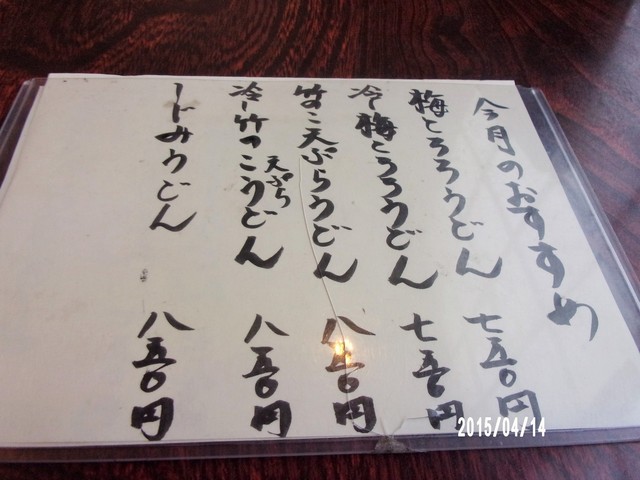 今月のおすすめ
梅とろろうどん 七五〇円
冷し梅とろろうどん 七五〇円
竹の子天ぷらうどん 八五〇円
冷し竹の子天ぷらうどん 八五〇円
しじみうどん 八五〇円
2015/04/14